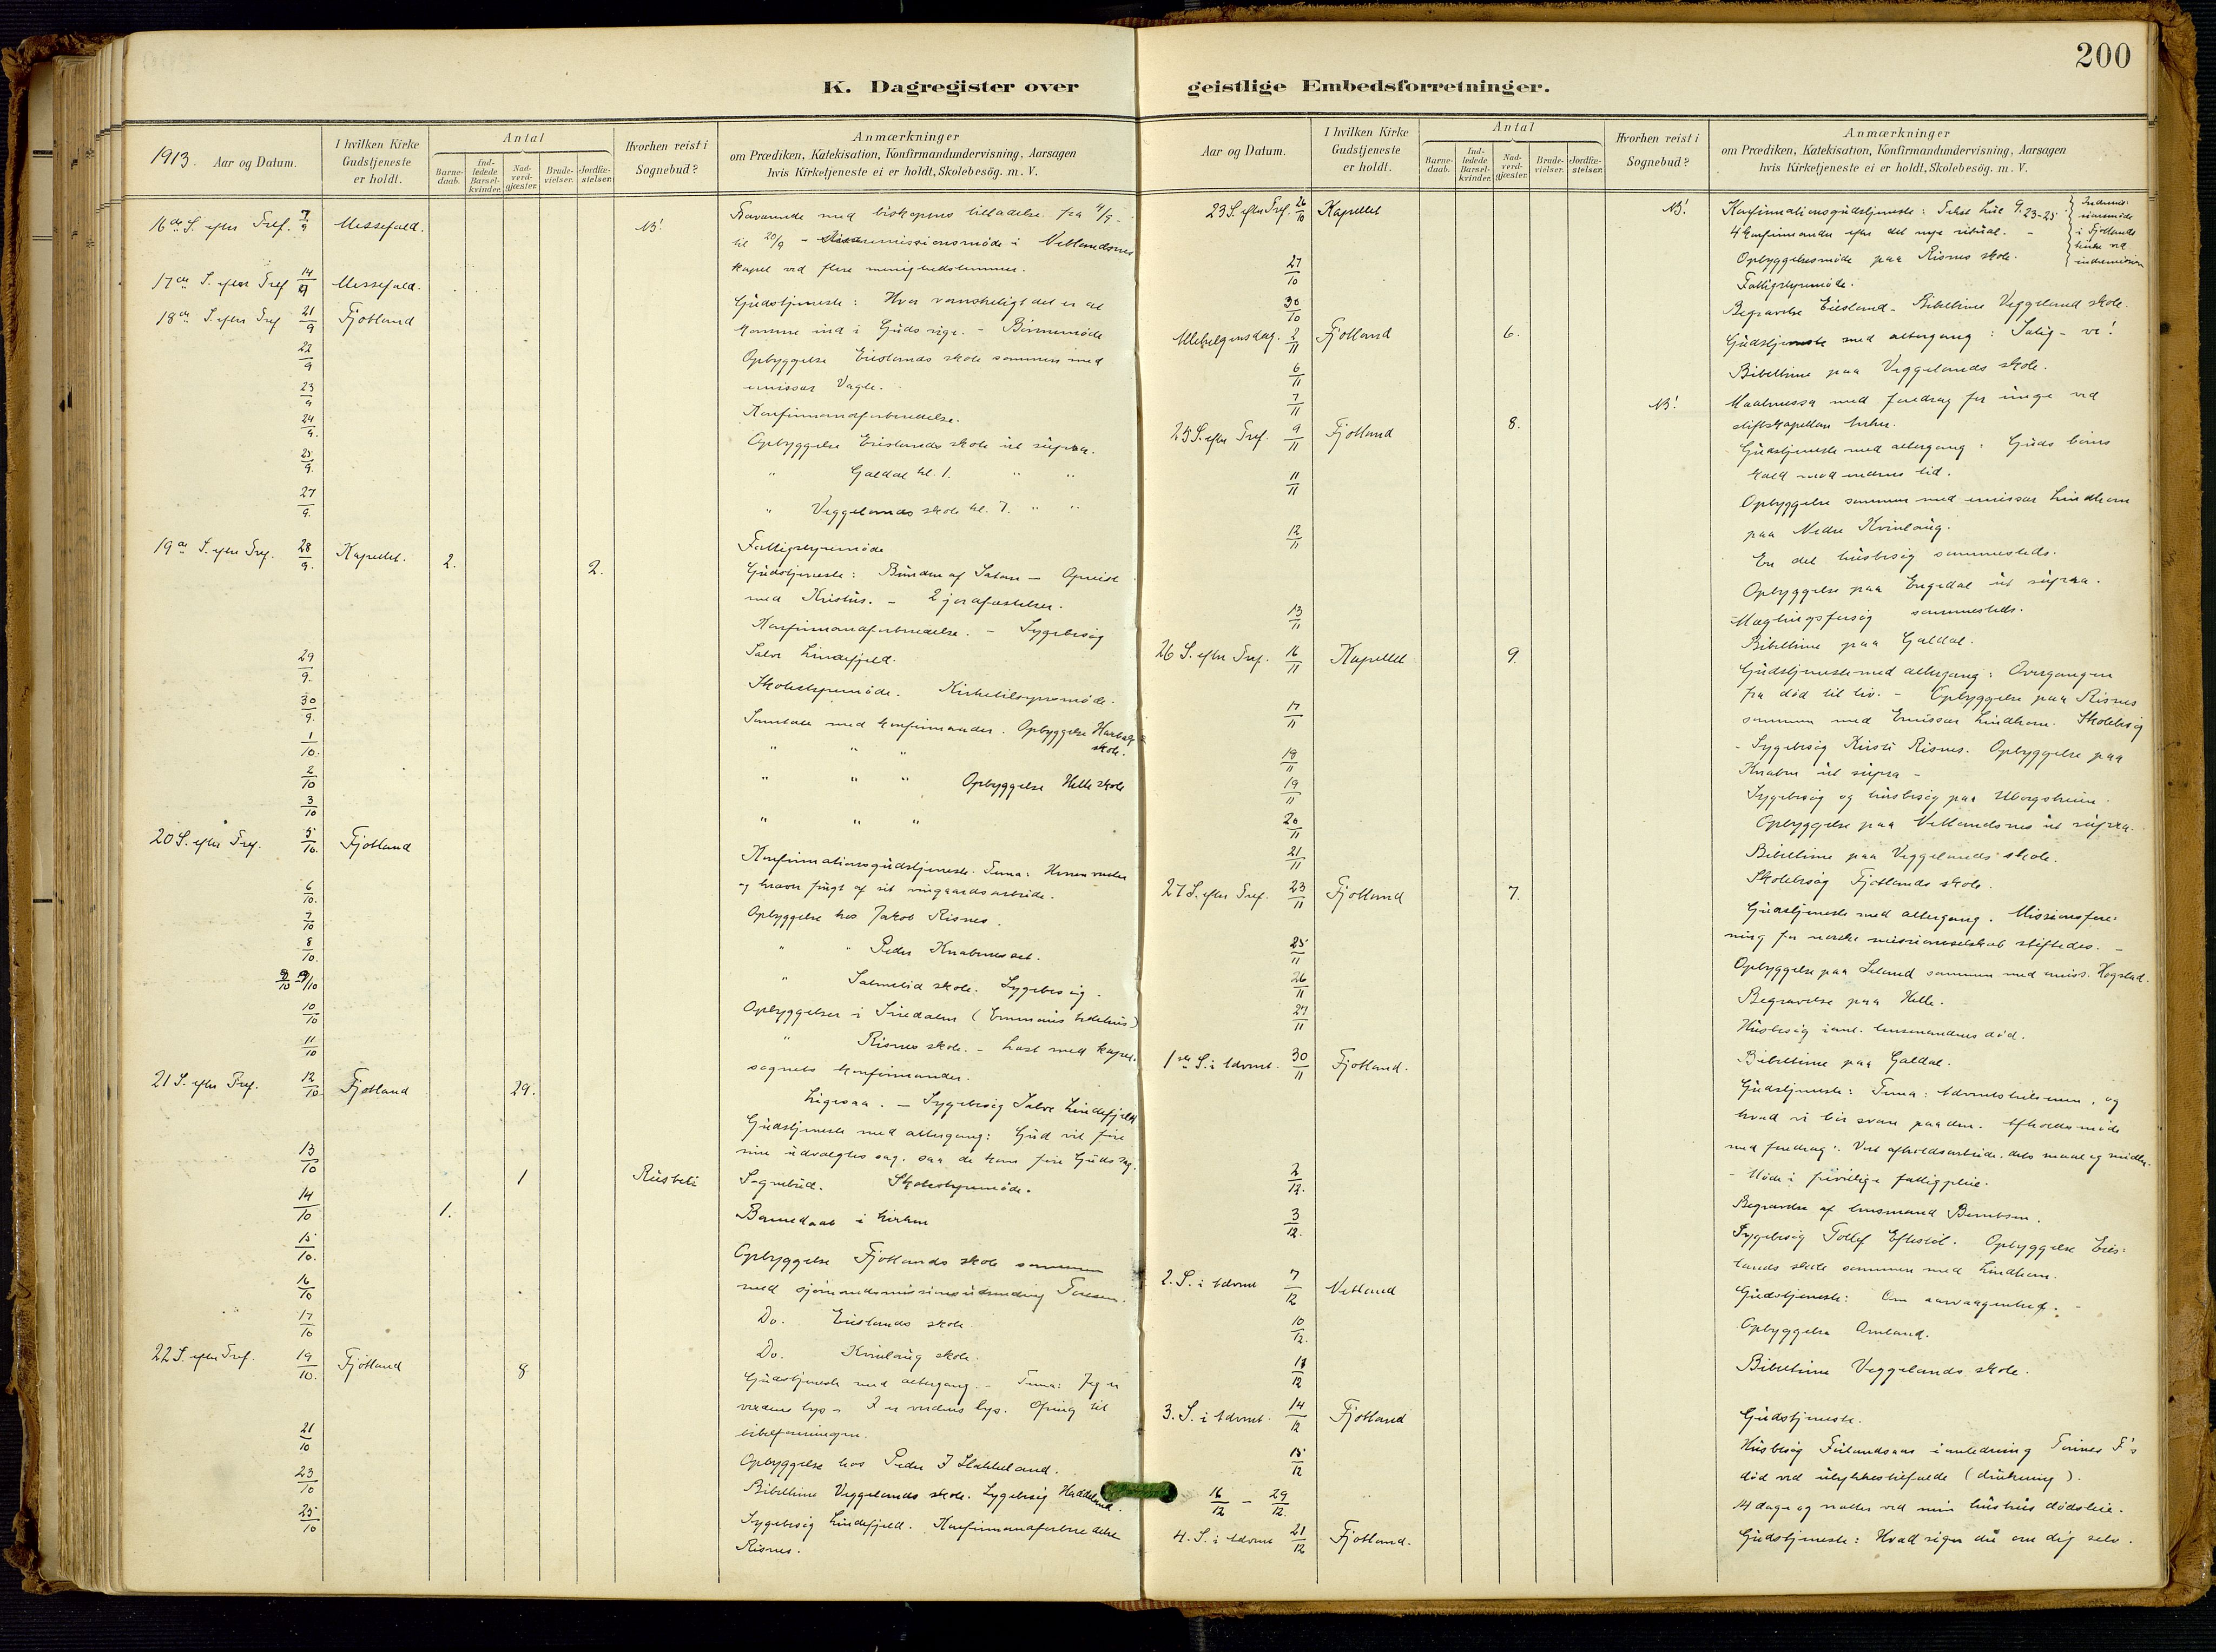 200
K. Dagregister over geistlige Embedsforretninger.
1913. Aar og Datum.
I hvilken Kirke Gudstjeneste er holdt.
Antal
Barnedaab.
Indledede Barselkvinder.
Nadverdgjæster.
Brudevielser.
Jordfæstelser.
Hvorhen reist i Sognebud?
Anmærkninger
om Prædiken, Katekisation, Konfirmandundervisning, Aarsagen
hvis Kirketjeneste ei er holdt, Skolebesög. m. V.
16de S. efter Tref. 7/9 Messefald. NB! Fraværende med biskopens tilladelse fra 4/9
til 20/9 - missionsmöde i Netlandsnes
kapel ved flere menighedslemmer.
17de S. efter Tref 14/9 Messefald.
18de S. efter Tref 21/9 Fjotland Gudstjeneste: Hvor vanskeligt det er at
komme ind i Guds rige. - Börnemöde
22/9 Opbyggelse Eieslands skole sammen med
emissær Vagle.
23/9 Konfirmandforberedelse.
24/9. Opbyggelse Eieslands skole ut supra.
25/9. " Galdal kl. 1. " "
27/9. " Veggelands skole kl. 7. " "
Fattigstyremöde
19de S. efter Tref. 28/9. Kapellet. 2. 2. Gudstjeneste: Bunden af Satan - Opreist
med Kristus. - 2 jordfæstelser.
Konfirmandforberedelse. - Sygebesög
Salve Lindefjeld.
29/9. Skolestyremöde. Kirketilsynsmöde.
30/9. Samtale med konfirmander. Opbyggelse
1/10. " " " skole.
2/10 " " " Opbyggelse Helle skole
3/10 " " "
20 S. efter Tref. 5/10. Fjotland Konfirmationsgudstjeneste. Tema: Herren venter
og kræver frugt af sit vingaardsarbeide.
6/10. Opbyggelse hos Jakob Risnes.
7/10 " " Peder Knabenes
8/10. " Salmelid skole. Sygebesög.
9/10 Opbyggelser i Siredalen (Emmaus bedehus)
10/10 " Risnes skole. - Læst med kapel
11/10 sognets konfirmander.
Ligesaa. - Sygebesög Salve Lindefjeld
21 S. efter Tref. 12/10 Fjotland 29. Gudstjeneste med altergang: Gud vil före
sine udvalgtes sag, saa de kan före Guds sag.
13/10 1 Rusbeli Sognebud. Skolestyremöde.
14/10 1. Barnedaab i kirken
15/10. Opbyggelse Fjotlands skole sammen
med sjömandsmissionsudsending
16/10 Do. Eieslands skole.
17/10 Do. Kvinlaug skole.
22 S. efter Tref. 19/10. Fjotland 8 Gudstjeneste med altergang. - Tema: Jeg er
verdens lys - I er verdens lys. Ofring til
bibelforeningen.
21/10 Opbyggelse hos Peder J Stakkeland.
23/10 Bibeltime Veggelands skole. Sygebesög Haddeland.
25/10 Sygebesög Lindefjeld. Konfirmandforberedelse
Risnes.
Aar og Datum.
I hvilken Kirke Gudstjeneste er holdt.
Antal
Barnedaab.
Indledede Barselkvinder.
Nadverdgjæster.
Brudevielser.
Jordfæstelser.
Hvorhen reist i Sognebud?
Anmærkninger
om Prædiken, Katekisation, Konfirmandundervisning, Aarsagen
hvis Kirketjeneste ei er holdt, Skolebesög. m. V.
23 S. efter Tref. 26/10 Kapellet NB! Konfirmationsgudstjeneste: Tekst Luk 9, 23-25
4 konfirmander efter det nye ritual. -
i Fjotlands kirke ved indremission
Opbyggelsesmöde paa Risnes skole.
27/10 Fattigstyremöde.
30/10 Begravelse Eiesland. Bibeltime Veggeland skole.
Allehelgensdag. 2/11 Fjotland 6. Gudstjeneste med altergang: Salig - ve!
6/11 Bibeltime paa Veggelands skole.
7/11 NB! med foredrag for unge ved
stiftskapellan
25 S. efter Tref. 9/11 Fjotland 8. Gudstjeneste med altergang: Guds börns
kald mod endens tid.
11/11 Opbyggelse sammen med emissær Lindhom
paa Nedre Kvinlaug.
12/11 En del husbesög sammesteds.
Opbyggelse paa Engedal ut supra.
Mæglingsforsög sammesteds.
13/11 Bibeltime paa Galdal.
26 S. efter Tref. 16/11 Kapellet 9. Gudstjeneste med altergang: Overgangen
fra död til liv. - Opbyggelse paa Risnes
17/11 sammen med Emissær Lindhom. Skolebesög
- Sygebesög Kirsti Risnes. Opbyggelse paa
18/11 Knaben ut supra -
19/11 Sygebesög og husbesög paa
20/11 Opbyggelse paa Netlandsnes ut supra.
21/11 Bibeltime paa Veggelands skole.
Skolebesög Fjotlands skole.
27 S. efter Tref. 23/11 Fjotland 7. Gudstjeneste med altergang. Missionsfore-
ning for norske missionsselskab stiftedes. -
25/11 Opbyggelse paa Seland sammen med emiss. Hogstad.
26/11 Begravelse paa Helle.
27/11 Husbesög i anl. lensmandens död.
Bibeltime paa Galdal.
1ste S. i Advent. 30/11 Fjotland. Gudstjeneste: Tema: Adventshilsenen, og
hvad vi bör svare paa den. Afholdsmöde
med foredrag: Vort afholdsarbeide, dets maal og midler.
2/12. - Möde i frivillige fattigpleie.
3/12. Begravelse af lensmand Berntsen.
Sygebesög Tollef Eftestöl. Opbyggelse Eies-
lands skole sammen med Lindhom.
2. S. i Advent 7/12 Netland Gudstjeneste: Om aarvaagenhed. -
10/12. Opbyggelse Omland.
11/12 Bibeltime Veggelands skole.
3. S. i Advent. 14/12 Fjotland Gudstjeneste.
15/12 Husbesög i anledning
död ved ulykkestilfælde (drukning).
16/12 - 29/12. 14 dage og nætter ved min hustrus dödsleie.
4. S. i Advent 21/12 Fjotland. Gudstjeneste: Hvad siger du om dig selv.